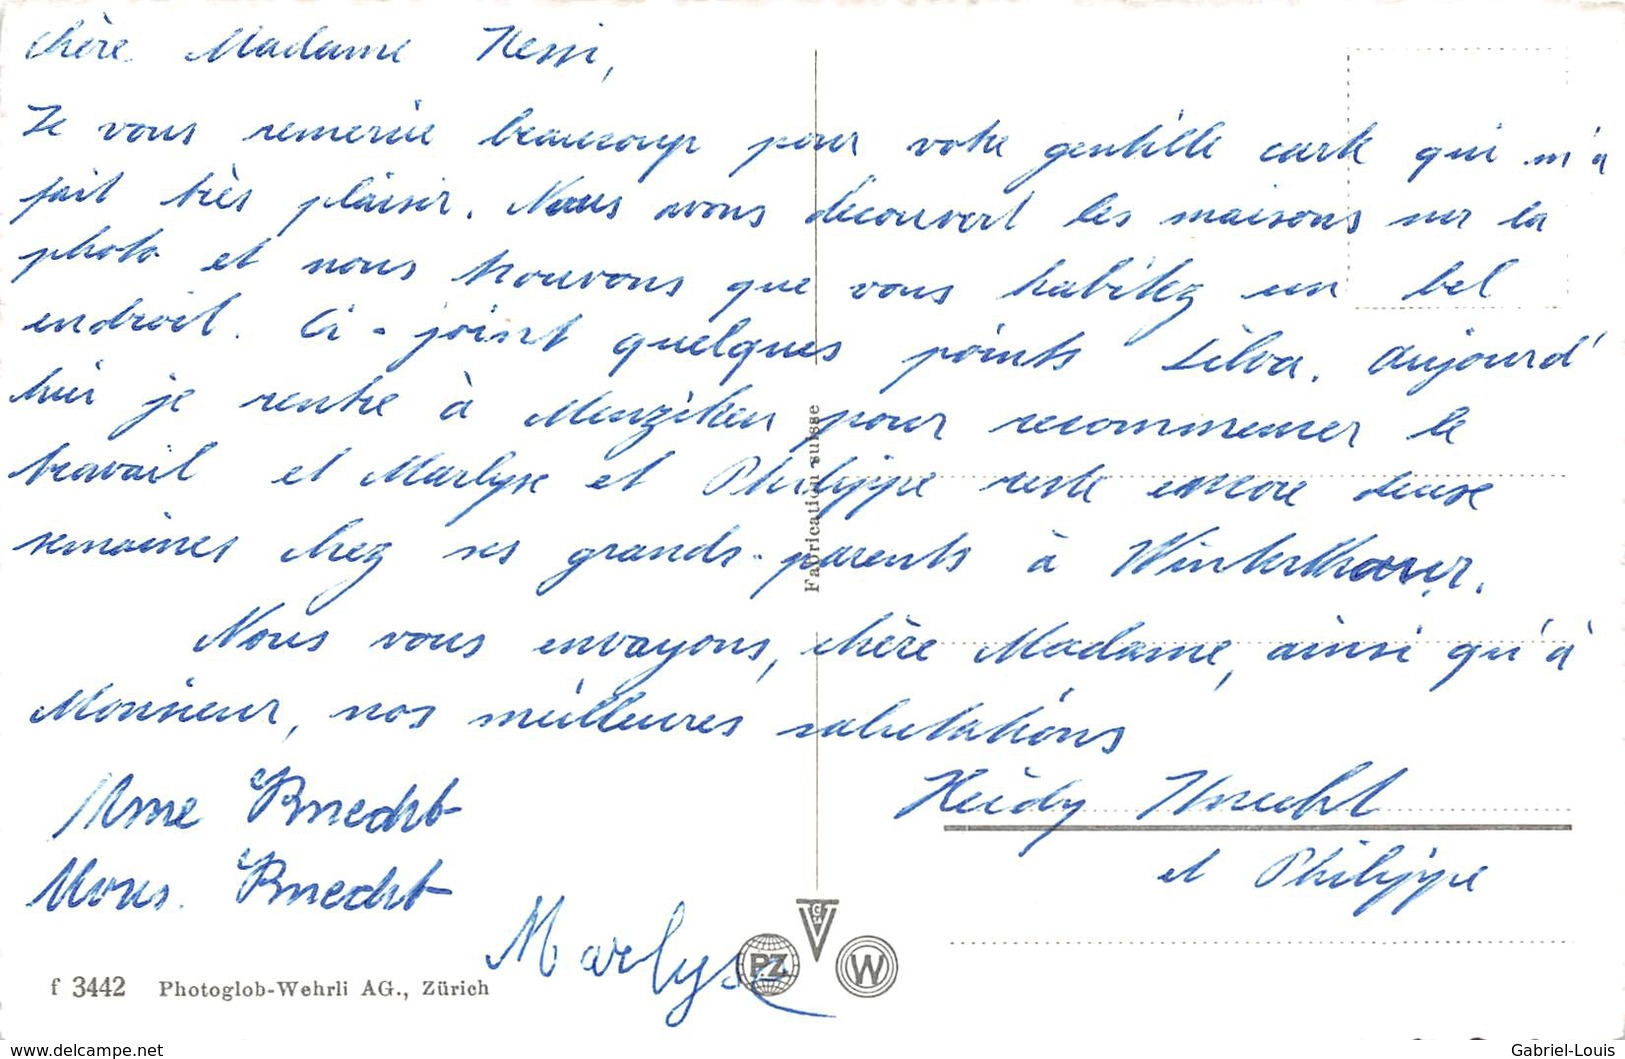 Chère Madame Hessi,
Je vous remercie beaucoup pour votre gentille carte qui m'a
fait très plaisir. Nous avons découvert les maisons sur la
photo et nous trouvons que vous habitez un bel
endroit. Ci-joint quelques points Silva. Aujourd'
hui je rentre à Menziken pour recommencer le
travail et Marlyse et Philippe reste encore deuxe
semaines chez ses grands-parents à Winterthour.
Nous vous envoyons, chère Madame, ainsi qu'à
Monsieur, nos meilleures salutations
Heidy Knecht
et Philippe
Mme Knecht
Mons. Knecht
Marlyse
Fabrication suisse
PZ
G
W
f 3442 Photoglob-Wehrli AG., Zürich
www.delcampe.net
Gabriel-Louis